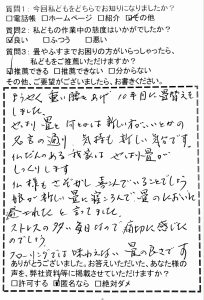 質問1: 今回私どもをどちらでお知りになりましたか?
□電話帳 □ホームページ □紹介 ☑その他
質問2: 私どもの作業中の態度はいかがでしたか?
☑良い □ふつう □悪い
質問3: 畳やふすまでお困りの方がいらっしゃったら、
私どもをご推薦いただけますか?
☑推薦できる □推薦できない □分からない
その他、ご要望がございましたら、お書きください。
ようやく重い腰をあげ 10年目に畳替えを
しました。
やっぱり畳
は新しい
名言の通り 気持も新しい気分です。
仏だんのある我家は やっぱり畳が
しっくりします
仏様もさぞかし喜んでいることでしょう
娘が新しい畳に寝ころんで 畳のにおいに
と言ってました。
ストレスの多い毎日なので 痛切に感じた
のでしょう
フローリングでは味わえない 畳の良さです
ありがとうございました。お答えいただいた、あなた様の
声を、弊社資料等に掲載させていただけますか?
□許可する ☑匿名なら □絶対ダメ